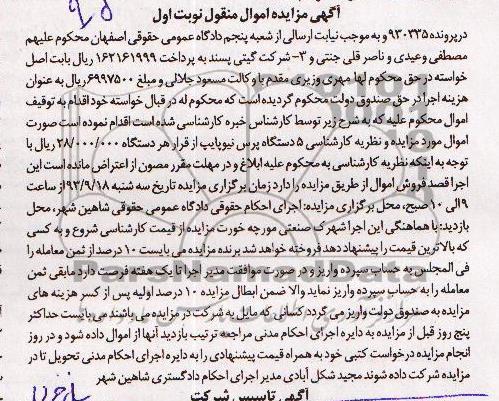 آگهی مزایده اموال منقول نوبت اول
در پرونده ۹۳۰۳۳۵ و به موجب نیابت ارسالی از شعبه پنجم دادگاه عمومی حقوقی اصفهان محکوم علیهم
مصطفی وعیدی و ناصر قلی جنتی و ۳- شرکت گیتی پسند به پرداخت ۱۶۲۱۶۱۹۹۹ ریال بابت اصل
خواسته در حق محکوم لها مهری وزیری مقدم با وکالت مسعود جلالی و مبلغ ۶۹۹۷۵۰۰ ریال به عنوان
هزینه اجرا در حق صندوق دولت محکوم گردیده است که محکوم له در قبال خواسته خود اقدام به توقیف
اموال محکوم علیه که به شرح زیر توسط کارشناس خبره کارشناسی شده است اقدام نموده است صورت
اموال مورد مزایده و نظریه کارشناسی ۵ دستگاه پرس نیوپایپ از قرار هر دستگاه ۲۸/۰۰۰/۰۰۰ ریال با
توجه به اینکه نظریه کارشناسی به محکوم علیه ابلاغ و در مهلت مقرر مصون از اعتراض مانده است این
اجرا قصد فروش اموال از طریق مزایده را دارد زمان برگزاری مزایده تاریخ سه شنبه ۹۳/۹/۱۸ از ساعت
۹ الی ۱۰ صبح، محل برگزاری مزایده: اجرای احکام حقوقی دادگاه عمومی حقوقی شاهین شهر، محل
بازدید: با هماهنگی این اجرا شهرک صنعتی مورچه خورت مزایده از قیمت کارشناسی شروع و به کسی
که بالاترین قیمت را پیشنهاد دهد فروخته خواهد شد برنده مزایده می بایست ۱۰ درصد از ثمن معامله را
فی المجلس به حساب سپرده واریز و در صورت موافقت مدیر اجرا تا یک هفته فرصت دارد مابقی ثمن
معامله را به حساب سپرده واریز نماید والا ضمن ابطال مزایده ۱۰ درصد اولیه پس از کسر هزینه های
مزایده به صندوق دولت واریز می گردد کسانی که مایل به شرکت در مزایده می باشند می بایست حداکثر
پنج روز قبل از مزایده به دایره اجرای احکام مدنی مراجعه ترتیب بازدید آنها از اموال داده شود و در روز
انجام مزایده درخواست کتبی خود به همراه قیمت پیشنهادی را به دایره اجرای احکام مدنی تحویل تا در
مزایده شرکت داده شوند مجید شکل آبادی مدیر اجرای احکام دادگستری شاهین شهر
آگهی تاسیس شرکت